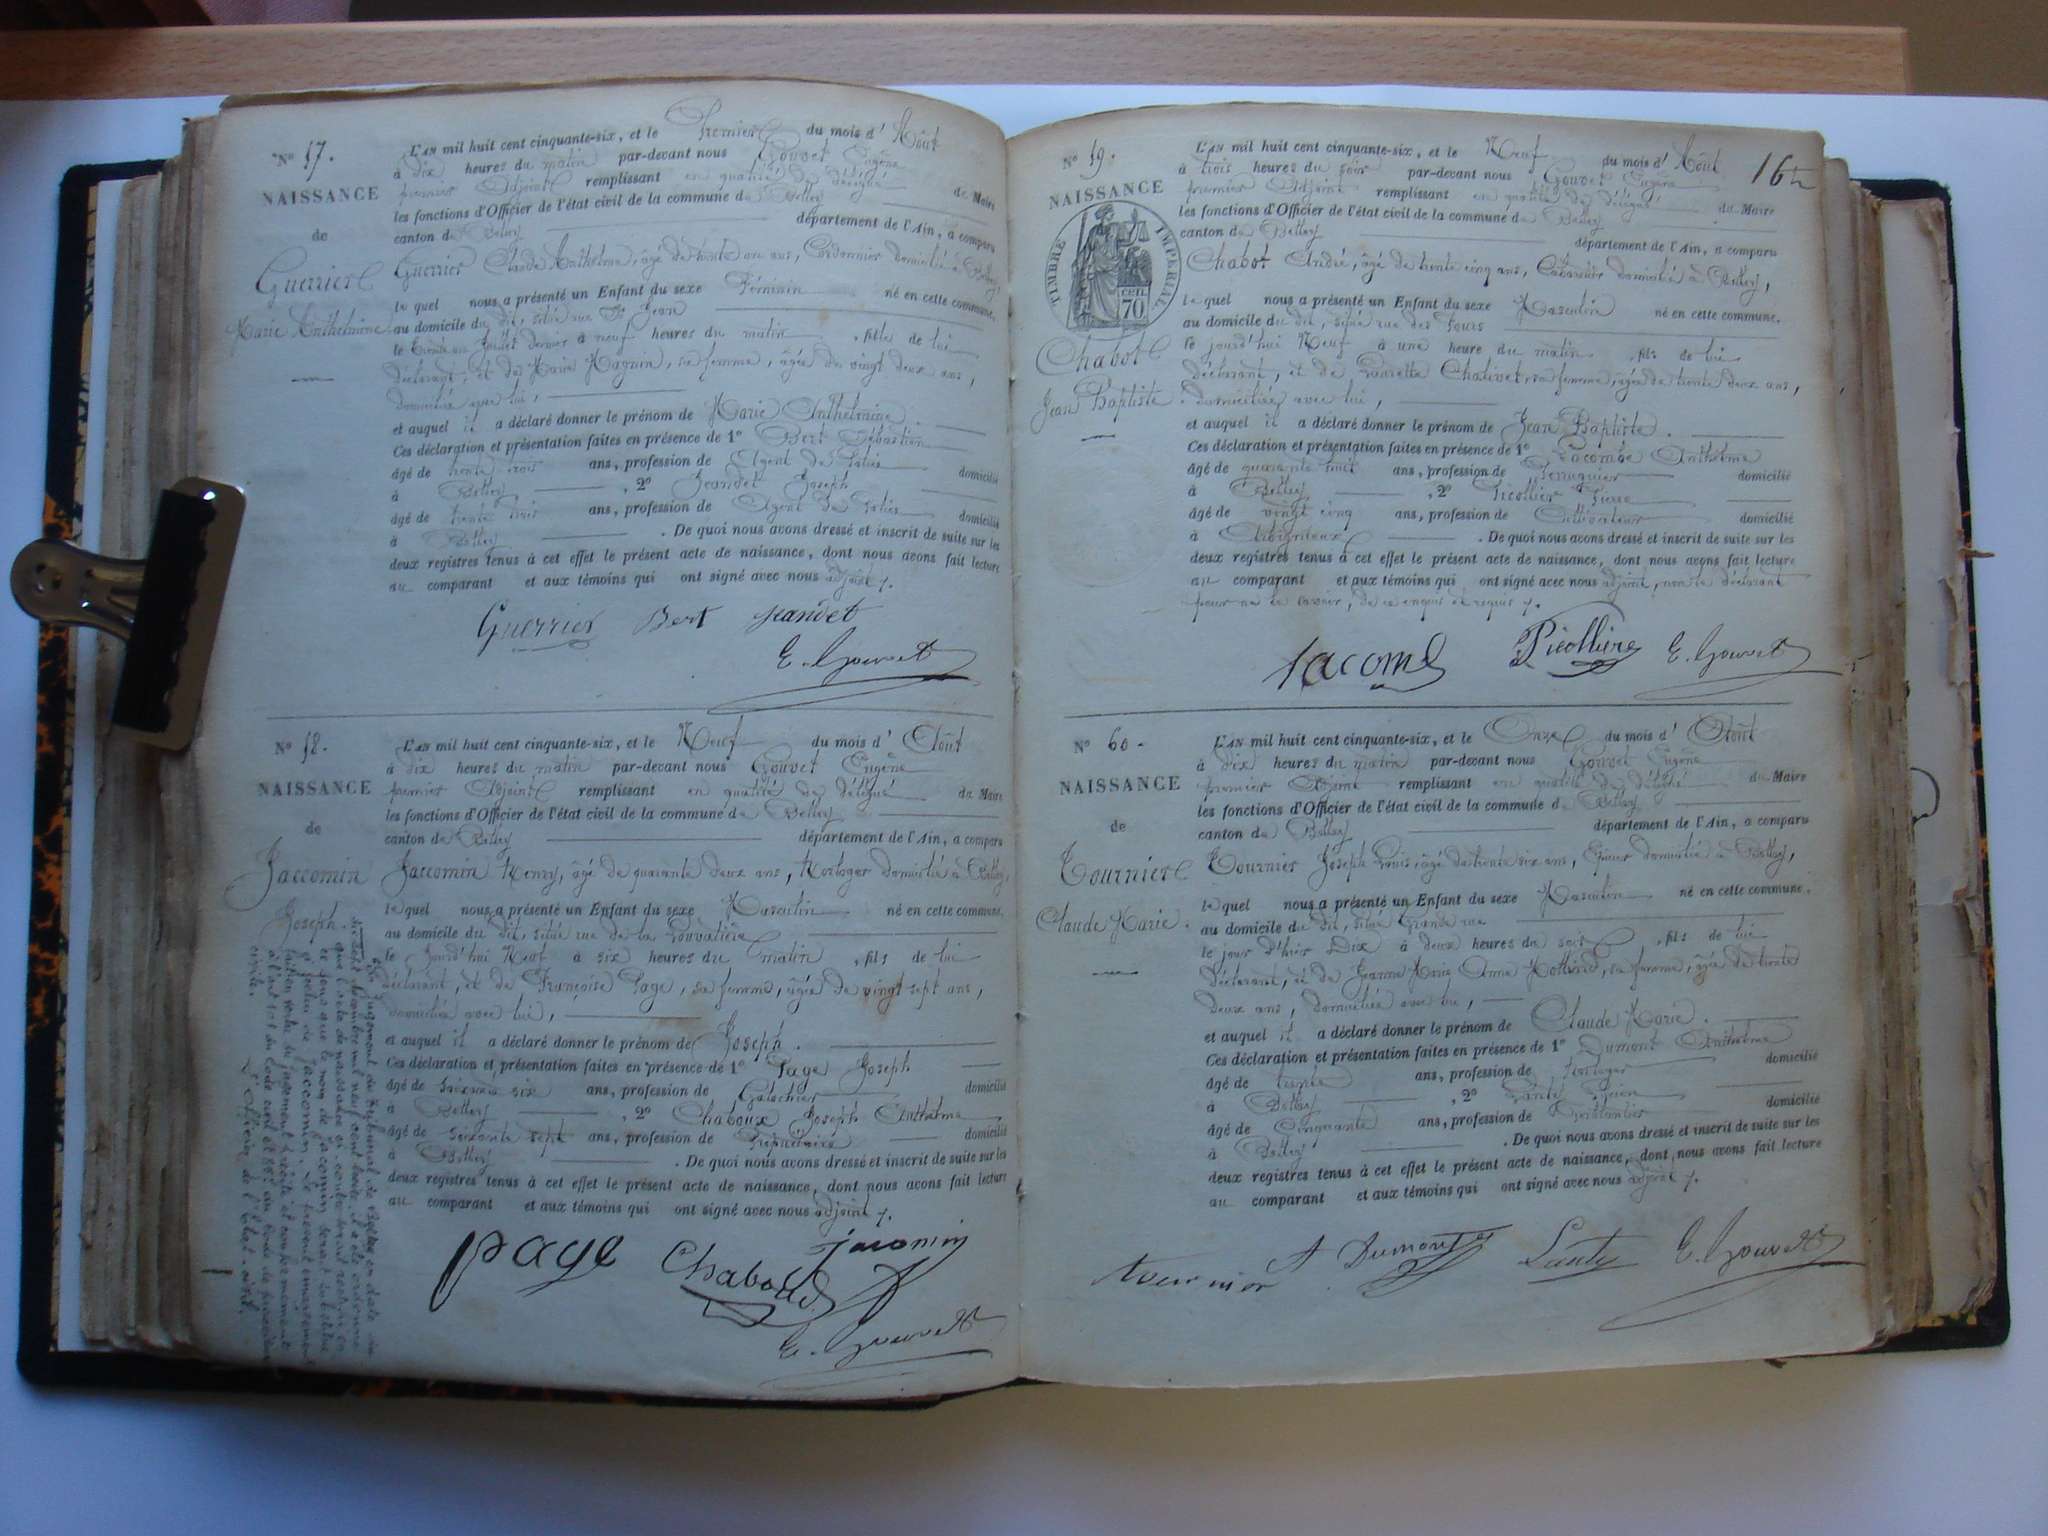 N° 57.
NAISSANCE
de
Guerrier
Marie Anthelmine
L'AN mil huit cent cinquante-six, et le Premier du mois d'Août
à dix heures du matin par-devant nous Gouvet Eugène
premier Adjoint remplissant en qualité de délégué du Maire
les fonctions d'Officier de l'état civil de la commune de Belley
canton de Belley département de l'Ain, a comparu
Guerrier Claude Anthelme, âgé de trente un ans, Cordonnier domicilié à Belley,
lequel nous a présenté un Enfant du sexe Féminin né en cette commune,
au domicile du dit, situé rue St Jean
le trente un Juillet dernier à neuf heures du matin, fille de lui
déclarant, et de Marie Magnin, sa femme, âgée de vingt deux ans,
domiciliée avec lui,
et auquel il a déclaré donner le prénom de Marie Anthelmine.
Ces déclaration et présentation faites en présence de 1° Bert Sébastien
âgé de trente trois ans, profession de Agent de Police domicilié
à Belley, 2° Jeandet Joseph
âgé de trente trois ans, profession de Agent de Police domicilié
à Belley. De quoi nous avons dressé et inscrit de suite sur les
deux registres tenus à cet effet le présent acte de naissance, dont nous avons fait lecture
au comparant et aux témoins qui ont signé avec nous adjoint
Guerrier Bert Jeandet
E. Gouvet
N° 58.
NAISSANCE
de
Jaccomin
Joseph.
L'AN mil huit cent cinquante-six, et le Neuf du mois d'Août
à dix heures du matin par-devant nous Gouvet Eugène
premier Adjoint remplissant en qualité de délégué du Maire
les fonctions d'Officier de l'état civil de la commune de Belley
canton de Belley département de l'Ain, a comparu
Jaccomin Henry, âgé de quarante deux ans, Horloger domicilié à Belley,
lequel nous a présenté un Enfant du sexe Masculin né en cette commune,
au domicile du dit, situé rue de la
le jourd'hui Neuf à six heures du matin, fils de lui
déclarant, et de Françoise Page, sa femme, âgée de vingt sept ans,
domiciliée avec lui,
et auquel il a déclaré donner le prénom de Joseph.
Ces déclaration et présentation faites en présence de 1° Page Joseph
âgé de soixante six ans, profession de Galochier domicilié
à Belley, 2° Chaboux Joseph Anthelme
âgé de soixante sept ans, profession de Propriétaire domicilié
à Belley. De quoi nous avons dressé et inscrit de suite sur les
deux registres tenus à cet effet le présent acte de naissance, dont nous avons fait lecture
au comparant et aux témoins qui ont signé avec nous adjoint
page Chaboud jacomin
E. Gouvet
Par jugement du tribunal de Belley en date du
sept Novembre mil neuf cent treize, il a été ordonné
que l'acte de naissance ci-contre serait rectifié en
ce sens que le nom de Jacomin serait substitué
à celui de Jaccomin. Le présent émargement
fait en vertu du jugement précité et conformément
à l'art 101 du Code civil et 857 du Code de procédure
civile.
L'Officier de l'Etat-civil.
16
N° 59.
NAISSANCE
TIMBRE IMPERIAL
70 cen.
Chabot
Jean Baptiste.
L'AN mil huit cent cinquante-six, et le Neuf du mois d'Août
à trois heures du soir par-devant nous Gouvet Eugène
premier Adjoint remplissant en qualité de délégué du Maire
les fonctions d'Officier de l'état civil de la commune de Belley
canton de Belley département de l'Ain, a comparu
Chabot André, âgé de trente cinq ans, domicilié à Belley,
lequel nous a présenté un Enfant du sexe Masculin né en cette commune,
au domicile du dit, situé rue des
le jourd'hui Neuf à une heure du matin, fils de lui
déclarant, et de Chalivet, sa femme, âgée de trente deux ans,
domiciliée avec lui,
et auquel il a déclaré donner le prénom de Jean Baptiste.
Ces déclaration et présentation faites en présence de 1° Lacombe Anthelme
âgé de quarante huit ans, profession de Perruquier domicilié
à Belley, 2° Picollier Pierre
âgé de vingt cinq ans, profession de Cultivateur domicilié
à Arbignieux. De quoi nous avons dressé et inscrit de suite sur les
deux registres tenus à cet effet le présent acte de naissance, dont nous avons fait lecture
au comparant et aux témoins qui ont signé avec nous adjoint, non le déclarant
pour ne le savoir, de ce enquis et requis
Lacombe Picollier E. Gouvet
N° 60.
NAISSANCE
de
Tournier
Claude Marie.
L'AN mil huit cent cinquante-six, et le Onze du mois d'Août
à dix heures du matin par-devant nous Gouvet Eugène
premier Adjoint remplissant en qualité de délégué du Maire
les fonctions d'Officier de l'état civil de la commune de Belley
canton de Belley département de l'Ain, a comparu
Tournier Joseph Louis, âgé de trente six ans, Epicier domicilié à Belley,
lequel nous a présenté un Enfant du sexe Masculin né en cette commune,
au domicile du dit, situé Grande rue
le jour d'hier Dix à deux heures du soir, fils de lui
déclarant, et de Jeanne Marie Anne sa femme, âgée de trente
deux ans, domiciliée avec lui,
et auquel il a déclaré donner le prénom de Claude Marie.
Ces déclaration et présentation faites en présence de 1° Dumont Anthelme
âgé de trente ans, profession de Horloger domicilié
à Belley, 2°
âgé de Cinquante ans, profession de domicilié
à Belley. De quoi nous avons dressé et inscrit de suite sur les
deux registres tenus à cet effet le présent acte de naissance, dont nous avons fait lecture
au comparant et aux témoins qui ont signé avec nous adjoint
tournier A Dumont Lanty E. Gouvet